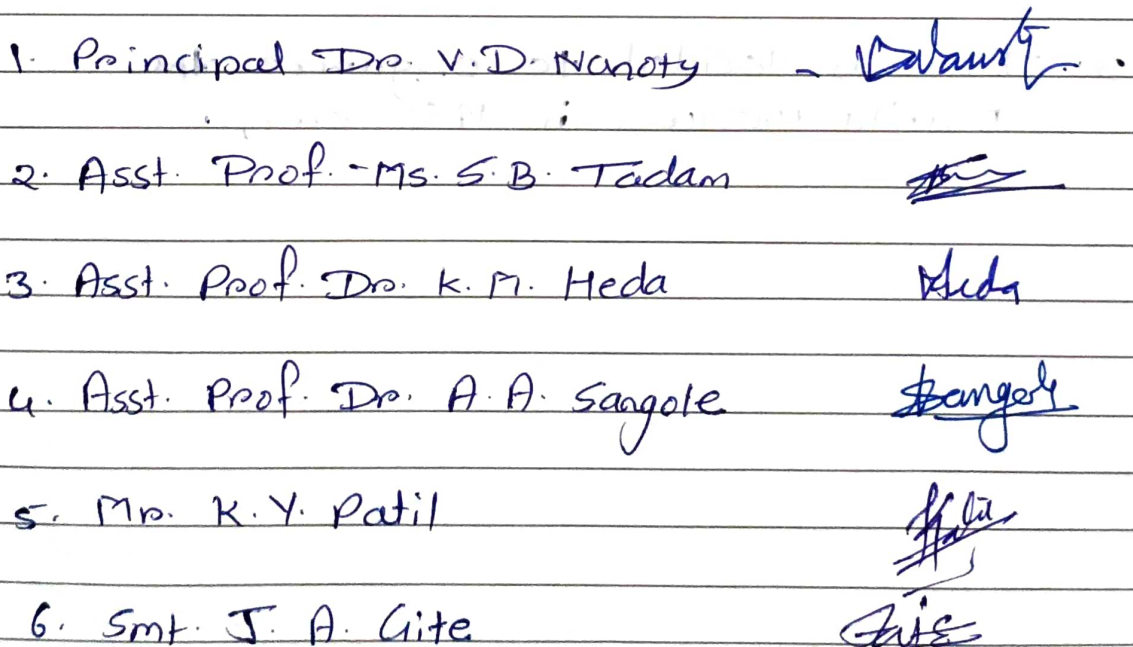 1. Principal Dr. V.D. Nanoty -
2. Asst. Prof. - Ms. S.B. Tadam
3. Asst. Prof. Dr. K.M. Heda Heda
4. Asst. Prof. Dr. A.A. Sangole
5. Mr. K.Y. Patil
6. Smt. J.A. Gite